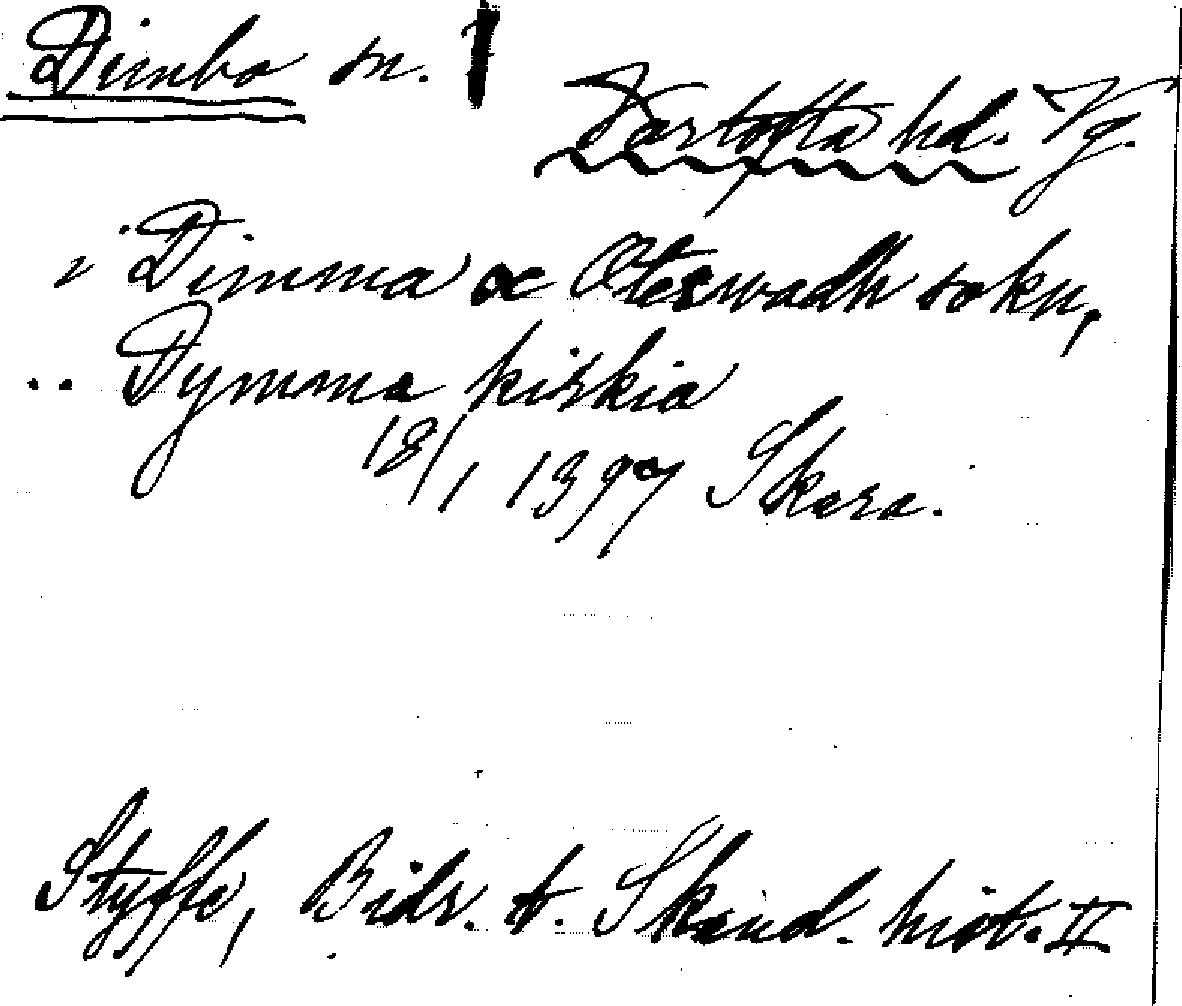 Dimbo sn.
Vartofta hd. Vg.
i Dimma oc Oteswadh sokn,
.. Dymma kirkia
18/1 1397 Skara.
Styffe, Bidr. t. Skand. hist. II